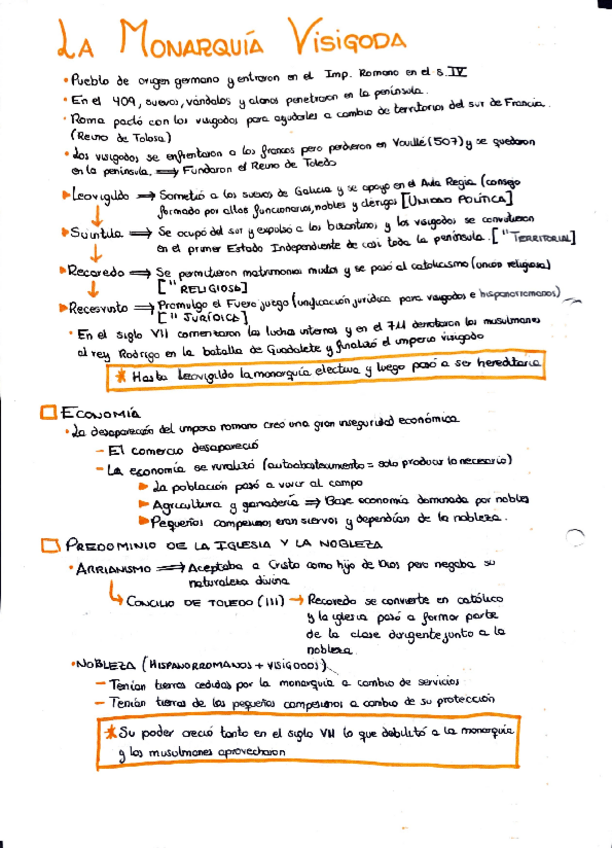 LA MONARQUÍA VISIGODA
• Pueblo de origen germano y entraron en el Imp. Romano en el s.IV
• En el 409, suevos, vándalos y alanos penetraron en la península.
• Roma pactó con los visigodos para ayudarles a cambio de territorios del sur de Francia.
(Reino de Tolosa)
• Los visigodos se enfrentaron a los francos pero perdieron en Vouillé (507) y se quedaron
en la península. ⟹ Fundaron el Reino de Toledo
▶ Leovigildo ⟹ Sometió a los suevos de Galicia y se apoyo en el Aula Regia (consejo
formado por altos funcionarios, nobles y clérigos [UNIDAD POLÍTICA]
▶ Suintila ⟹ Se ocupó del sur y expulsó a los bizantinos y los visigodos se convirtieron
en el primer Estado Independiente de casi toda la península. [" TERRITORIAL]
▶ Recaredo ⟹ Se permitieron matrimonios mixtos y se pasó al catolicismo (unión religiosa)
[" RELIGIOSA]
▶ Recesvinto ⟹ Promulgo el Fuero juego (unificación jurídica para visigodos e hispanorromanos)
[" JURÍDICA]
• En el siglo VII comenzaron las lucha internas y en el 711 derrotaron los musulmanes
al rey Rodrigo en la batalla de Guadalete y finalizó el imperio visigodo
* Hasta Leovigildo la monarquía electiva y luego pasó a ser hereditaria
ECONOMÍA
• La desaparición del imperio romano creó una gran inseguridad económica
– El comercio desapareció
– La economía se ruralizó (autoabastecimiento = solo producir lo necesario)
▶ La población pasó a vivir al campo
▶ Agricultura y ganadería ⟹ Base economía dominada por nobles
▶ Pequeños campesinos eran siervos y dependían de la nobleza.
PREDOMINIO DE LA IGLESIA Y LA NOBLEZA
• ARRIANISMO ⟹ Aceptaba a Cristo como hijo de Dios pero negaba su
naturaleza divina
↳ CONCILIO DE TOLEDO (III) → Recaredo se convierte en católico
y la iglesia pasó a formar parte
de la clase dirigente junto a la
nobleza.
• NOBLEZA (HISPANORROMANOS + VISIGODOS)
– Tenían tierras cedidas por la monarquía a cambio de servicios
– Tenían tierras de los pequeños campesinos a cambio de su protección
* Su poder creció tanto en el siglo VII lo que debilitó a la monarquía
y los musulmanes aprovecharon